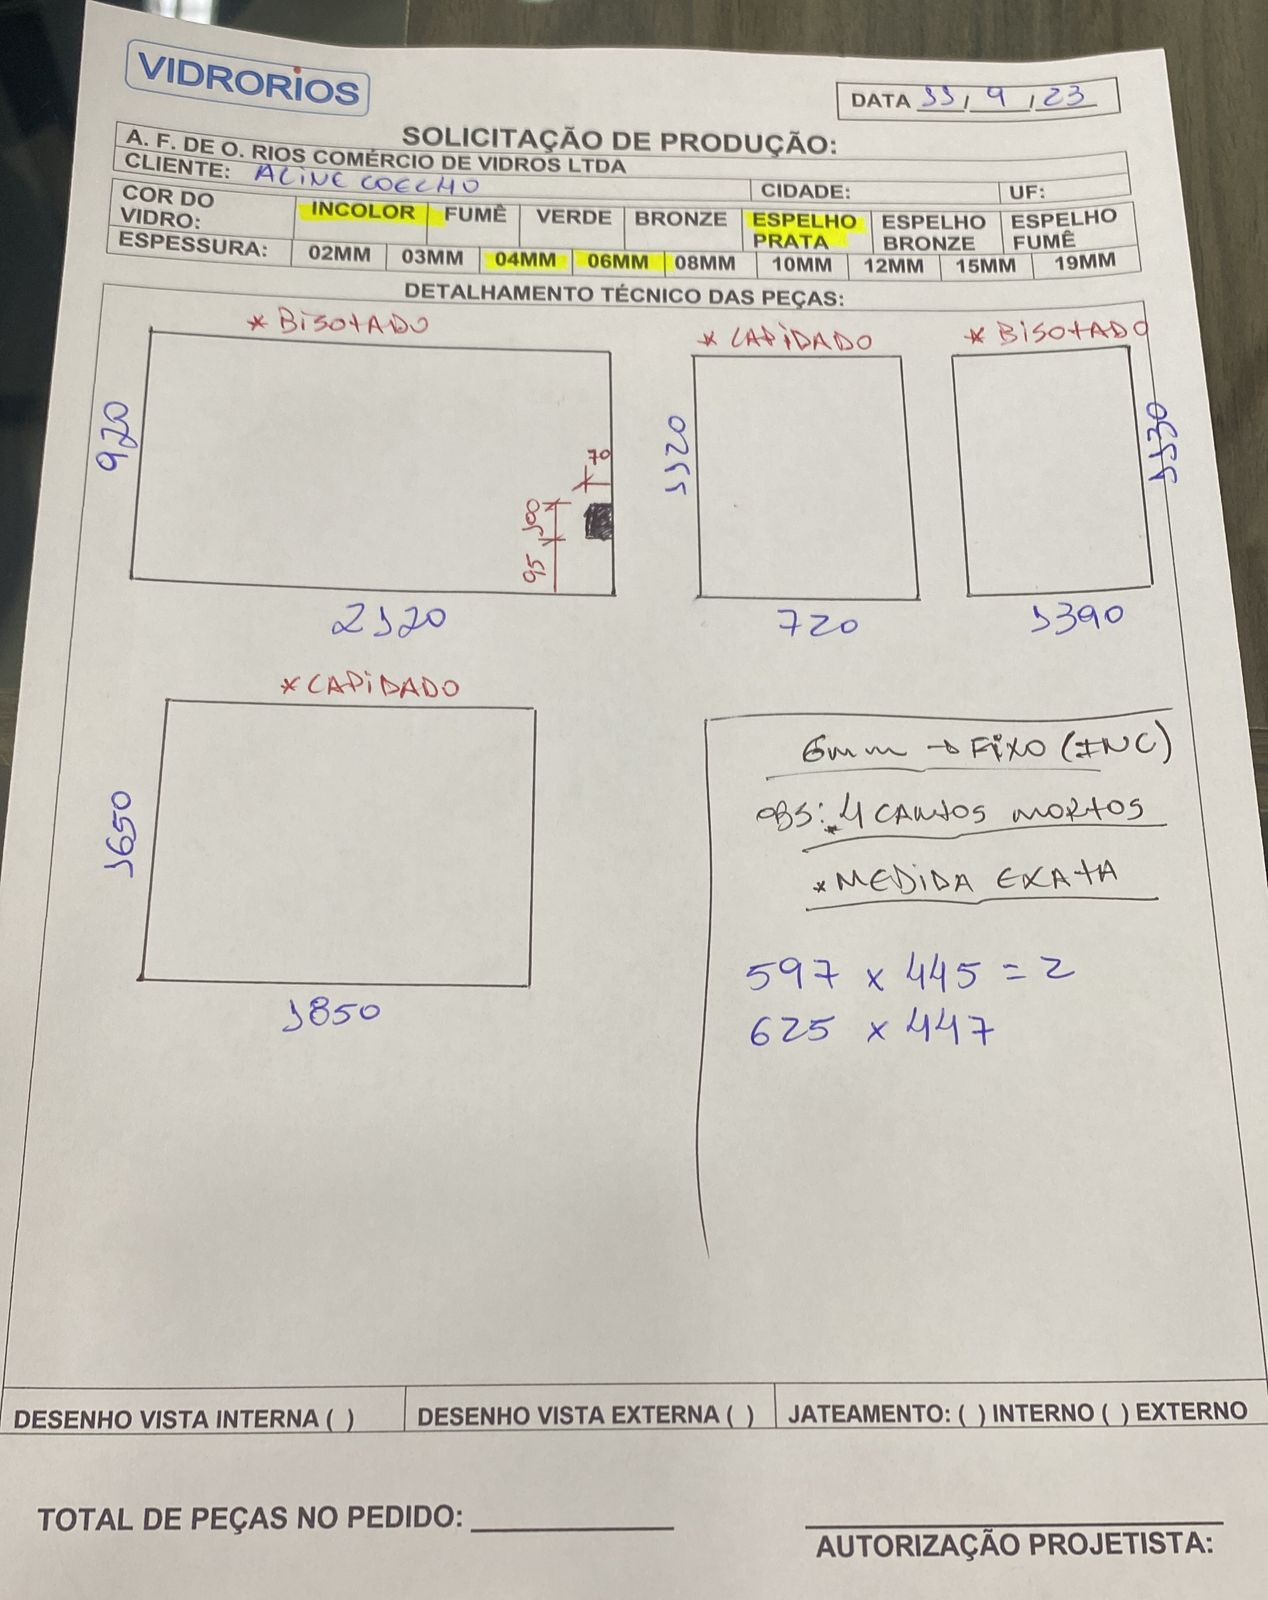 VIDRORIOS
DATA 11/9/23
SOLICITAÇÃO DE PRODUÇÃO:
A. F. DE O. RIOS COMÉRCIO DE VIDROS LTDA
CLIENTE: ALINE COELHO CIDADE: UF:
COR DO VIDRO: INCOLOR FUMÊ VERDE BRONZE ESPELHO PRATA ESPELHO BRONZE ESPELHO FUMÊ
ESPESSURA: 02MM 03MM 04MM 06MM 08MM 10MM 12MM 15MM 19MM
DETALHAMENTO TÉCNICO DAS PEÇAS:
* BISOTADO
920
70
100
95
2120
* LAPIDADO
1120
720
* BISOTADO
1130
1390
* LAPIDADO
1650
1850
6mm → FIXO (INC)
OBS: * 4 CANTOS MORTOS
* MEDIDA EXATA
597 x 445 = 2
625 x 447
DESENHO VISTA INTERNA ( ) DESENHO VISTA EXTERNA ( ) JATEAMENTO: ( ) INTERNO ( ) EXTERNO
TOTAL DE PEÇAS NO PEDIDO:
AUTORIZAÇÃO PROJETISTA: